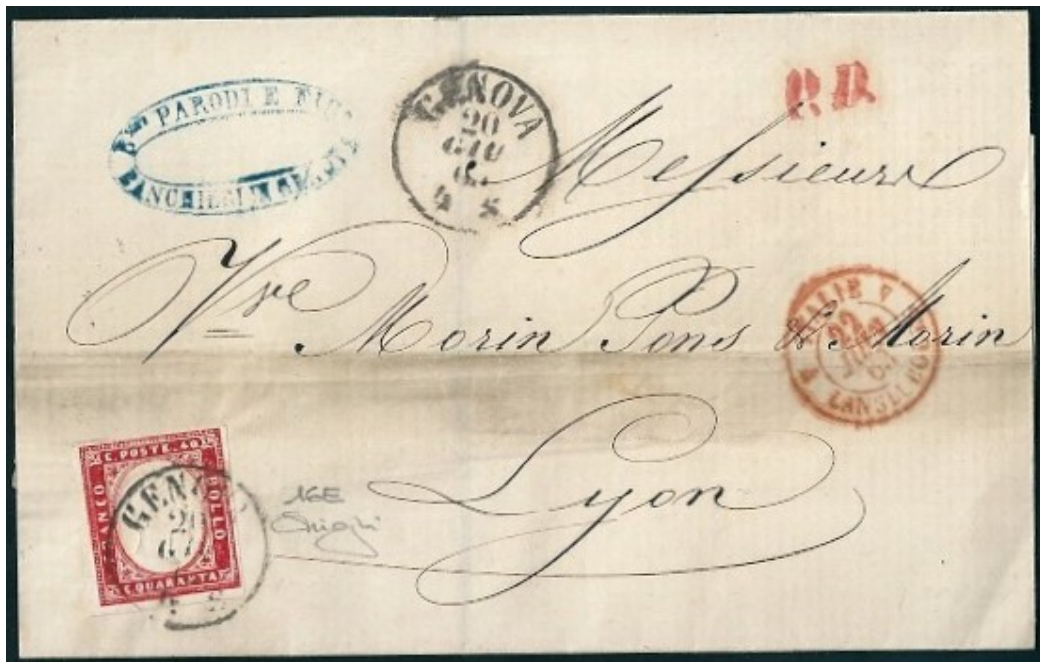 PARODI E
BANCHIERI
GENOVA
20
GIU
4 S
P.D.
Messieurs
Vve Morin Pons & Morin
Lyon
ITALIE
22
JUIN
63
LANSLEBOURG
C. POSTE. 40
FRANCO
BOLLO
C. QUARANTA
GENOVA
20
GIU
16E